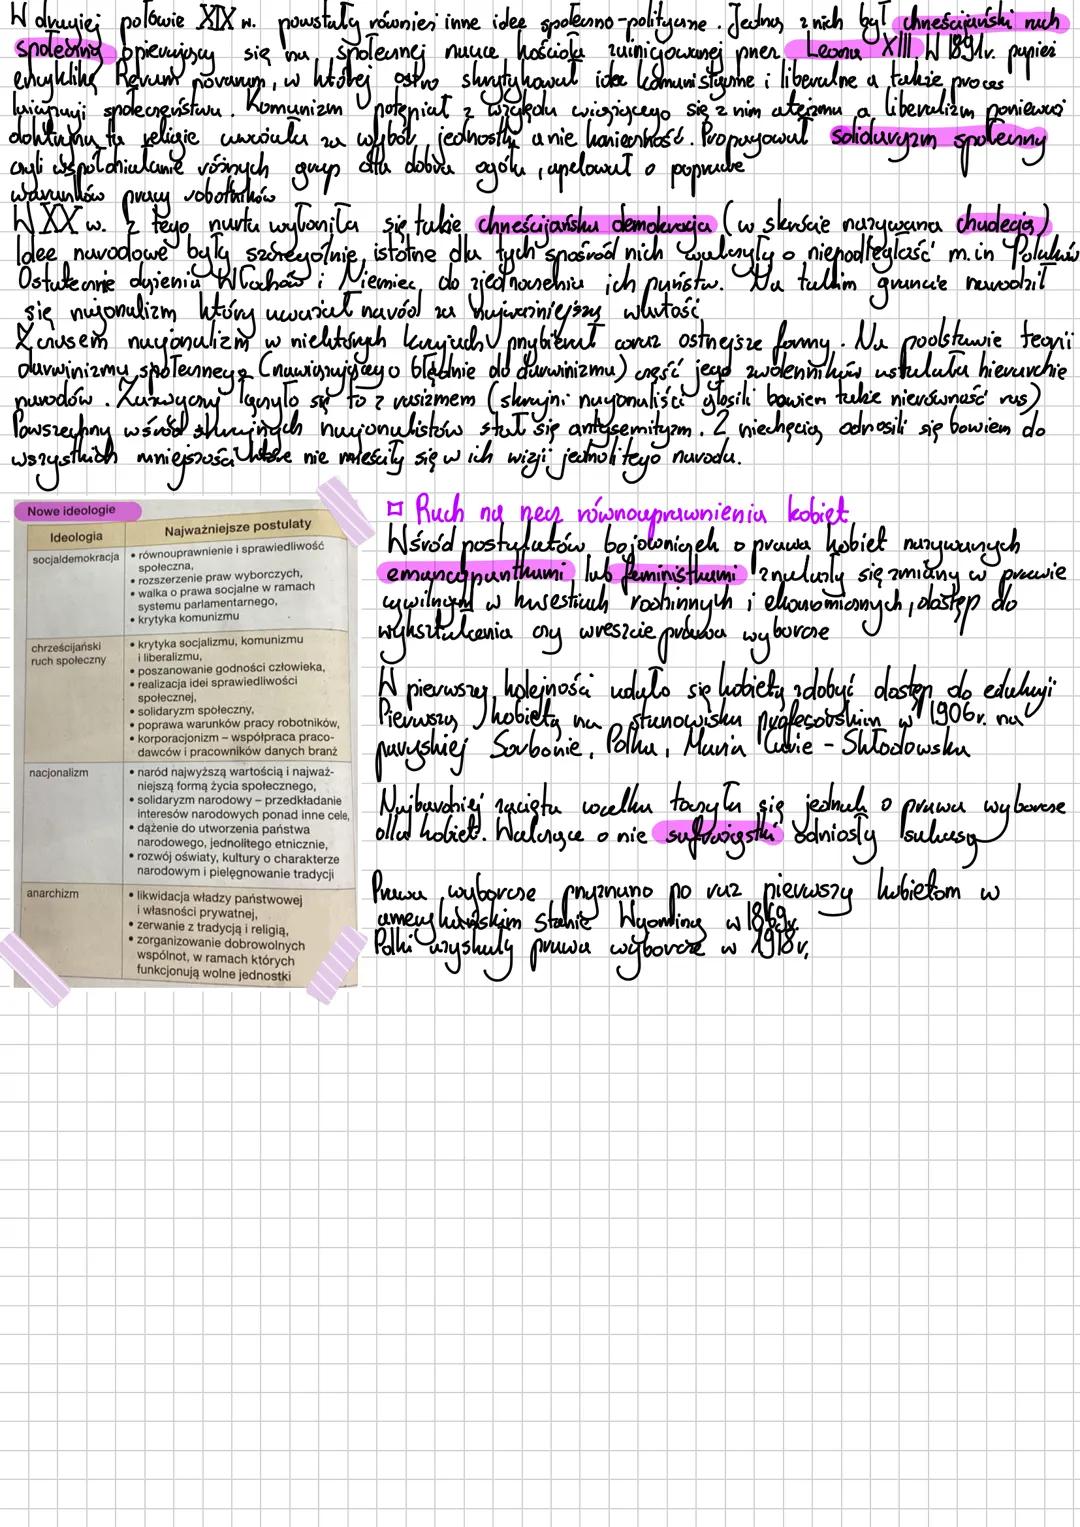 W drugiej połowie XIX w. powstały również inne idee społeczno-polityczne. Jedną z nich był chrześcijański ruch
społeczny opierający się na społecznej nauce kościoła zainicjowanej przez Leona XIII. W 1891r. papież
encykliką Rerum novarum, w której ostro skrytykował idee komunistyczne i liberalne a także proces
laicyzacji społeczeństwa. Komunizm potępiał z względu wiążącego się z nim ateizmu a liberalizm ponieważ
doktryna ta religie uważała za wybór jednostki a nie konieczność. Propagował solidaryzm społeczny
czyli współdziałanie różnych grup dla dobra ogółu, apelował o poprawe
warunków pracy robotników
W XX w. z tego nurtu wyłoniła się także chrześcijańska demokracja (w skrócie nazywana chadecją)
Idee narodowe były szczególnie istotne dla tych spośród nich walczyły o niepodległość m.in Polaków
Ostatecznie dążenia Włochów i Niemiec do zjednoczenia ich państw. Na takim gruncie narodził
się nacjonalizm który uważał naród za najważniejszą wartość
Z czasem nacjonalizm w niektórych krajach przybierał coraz ostrzejsze formy. Na podstawie teorii
darwinizmu społecznego (nawiązującego błędnie do darwinizmu) część jego zwolenników ustalała hierarchie
narodów. Zazwyczaj łączyło się to z rasizmem (skrajni nacjonaliści głosili bowiem także nierówność ras)
Powszechny wśród skrajnych nacjonalistów stał się antysemityzm. Z niechęcią odnosili się bowiem do
wszystkich mniejszości które nie mieściły się w ich wizji jednolitego narodu.
Nowe ideologie
Ideologia Najważniejsze postulaty
socjaldemokracja • równouprawnienie i sprawiedliwość
społeczna,
• rozszerzenie praw wyborczych,
• walka o prawa socjalne w ramach
systemu parlamentarnego,
• krytyka komunizmu
chrześcijański • krytyka socjalizmu, komunizmu
ruch społeczny i liberalizmu,
• poszanowanie godności człowieka,
• realizacja idei sprawiedliwości
społecznej,
• solidaryzm społeczny,
• poprawa warunków pracy robotników,
• korporacjonizm – współpraca praco-
dawców i pracowników danych branż
nacjonalizm • naród najwyższą wartością i najważ-
niejszą formą życia społecznego,
• solidaryzm narodowy – przedkładanie
interesów narodowych ponad inne cele,
• dążenie do utworzenia państwa
narodowego, jednolitego etnicznie,
• rozwój oświaty, kultury o charakterze
narodowym i pielęgnowanie tradycji
anarchizm • likwidacja władzy państwowej
i własności prywatnej,
• zerwanie z tradycją i religią,
• zorganizowanie dobrowolnych
wspólnot, w ramach których
funkcjonują wolne jednostki
Ruch na rzecz równouprawnienia kobiet
Wśród postulatów bojowniczek o prawa kobiet nazywanych
emancypantkami lub feministkami znalazły się zmiany w prawie
cywilnym w kwestiach rodzinnych i ekonomicznych, dostęp do
wykształcenia czy wreszcie prawa wyborcze
W pierwszej kolejności udało się kobietą zdobyć dostęp do edukacji
Pierwszą kobietą na stanowisku profesorskim w 1906r. na
paryskiej Sorbonie, Polka, Maria Curie - Skłodowska
Najbardziej zacięta walka toczyła się jednak o prawa wyborcze
dla kobiet. Walczące o nie sufrażystki odniosły sukcesy
Prawa wyborcze przyznano po raz pierwszy kobietom w
amerykańskim stanie Wyoming w 1869r.
Polki uzyskały prawa wyborcze w 1918r.